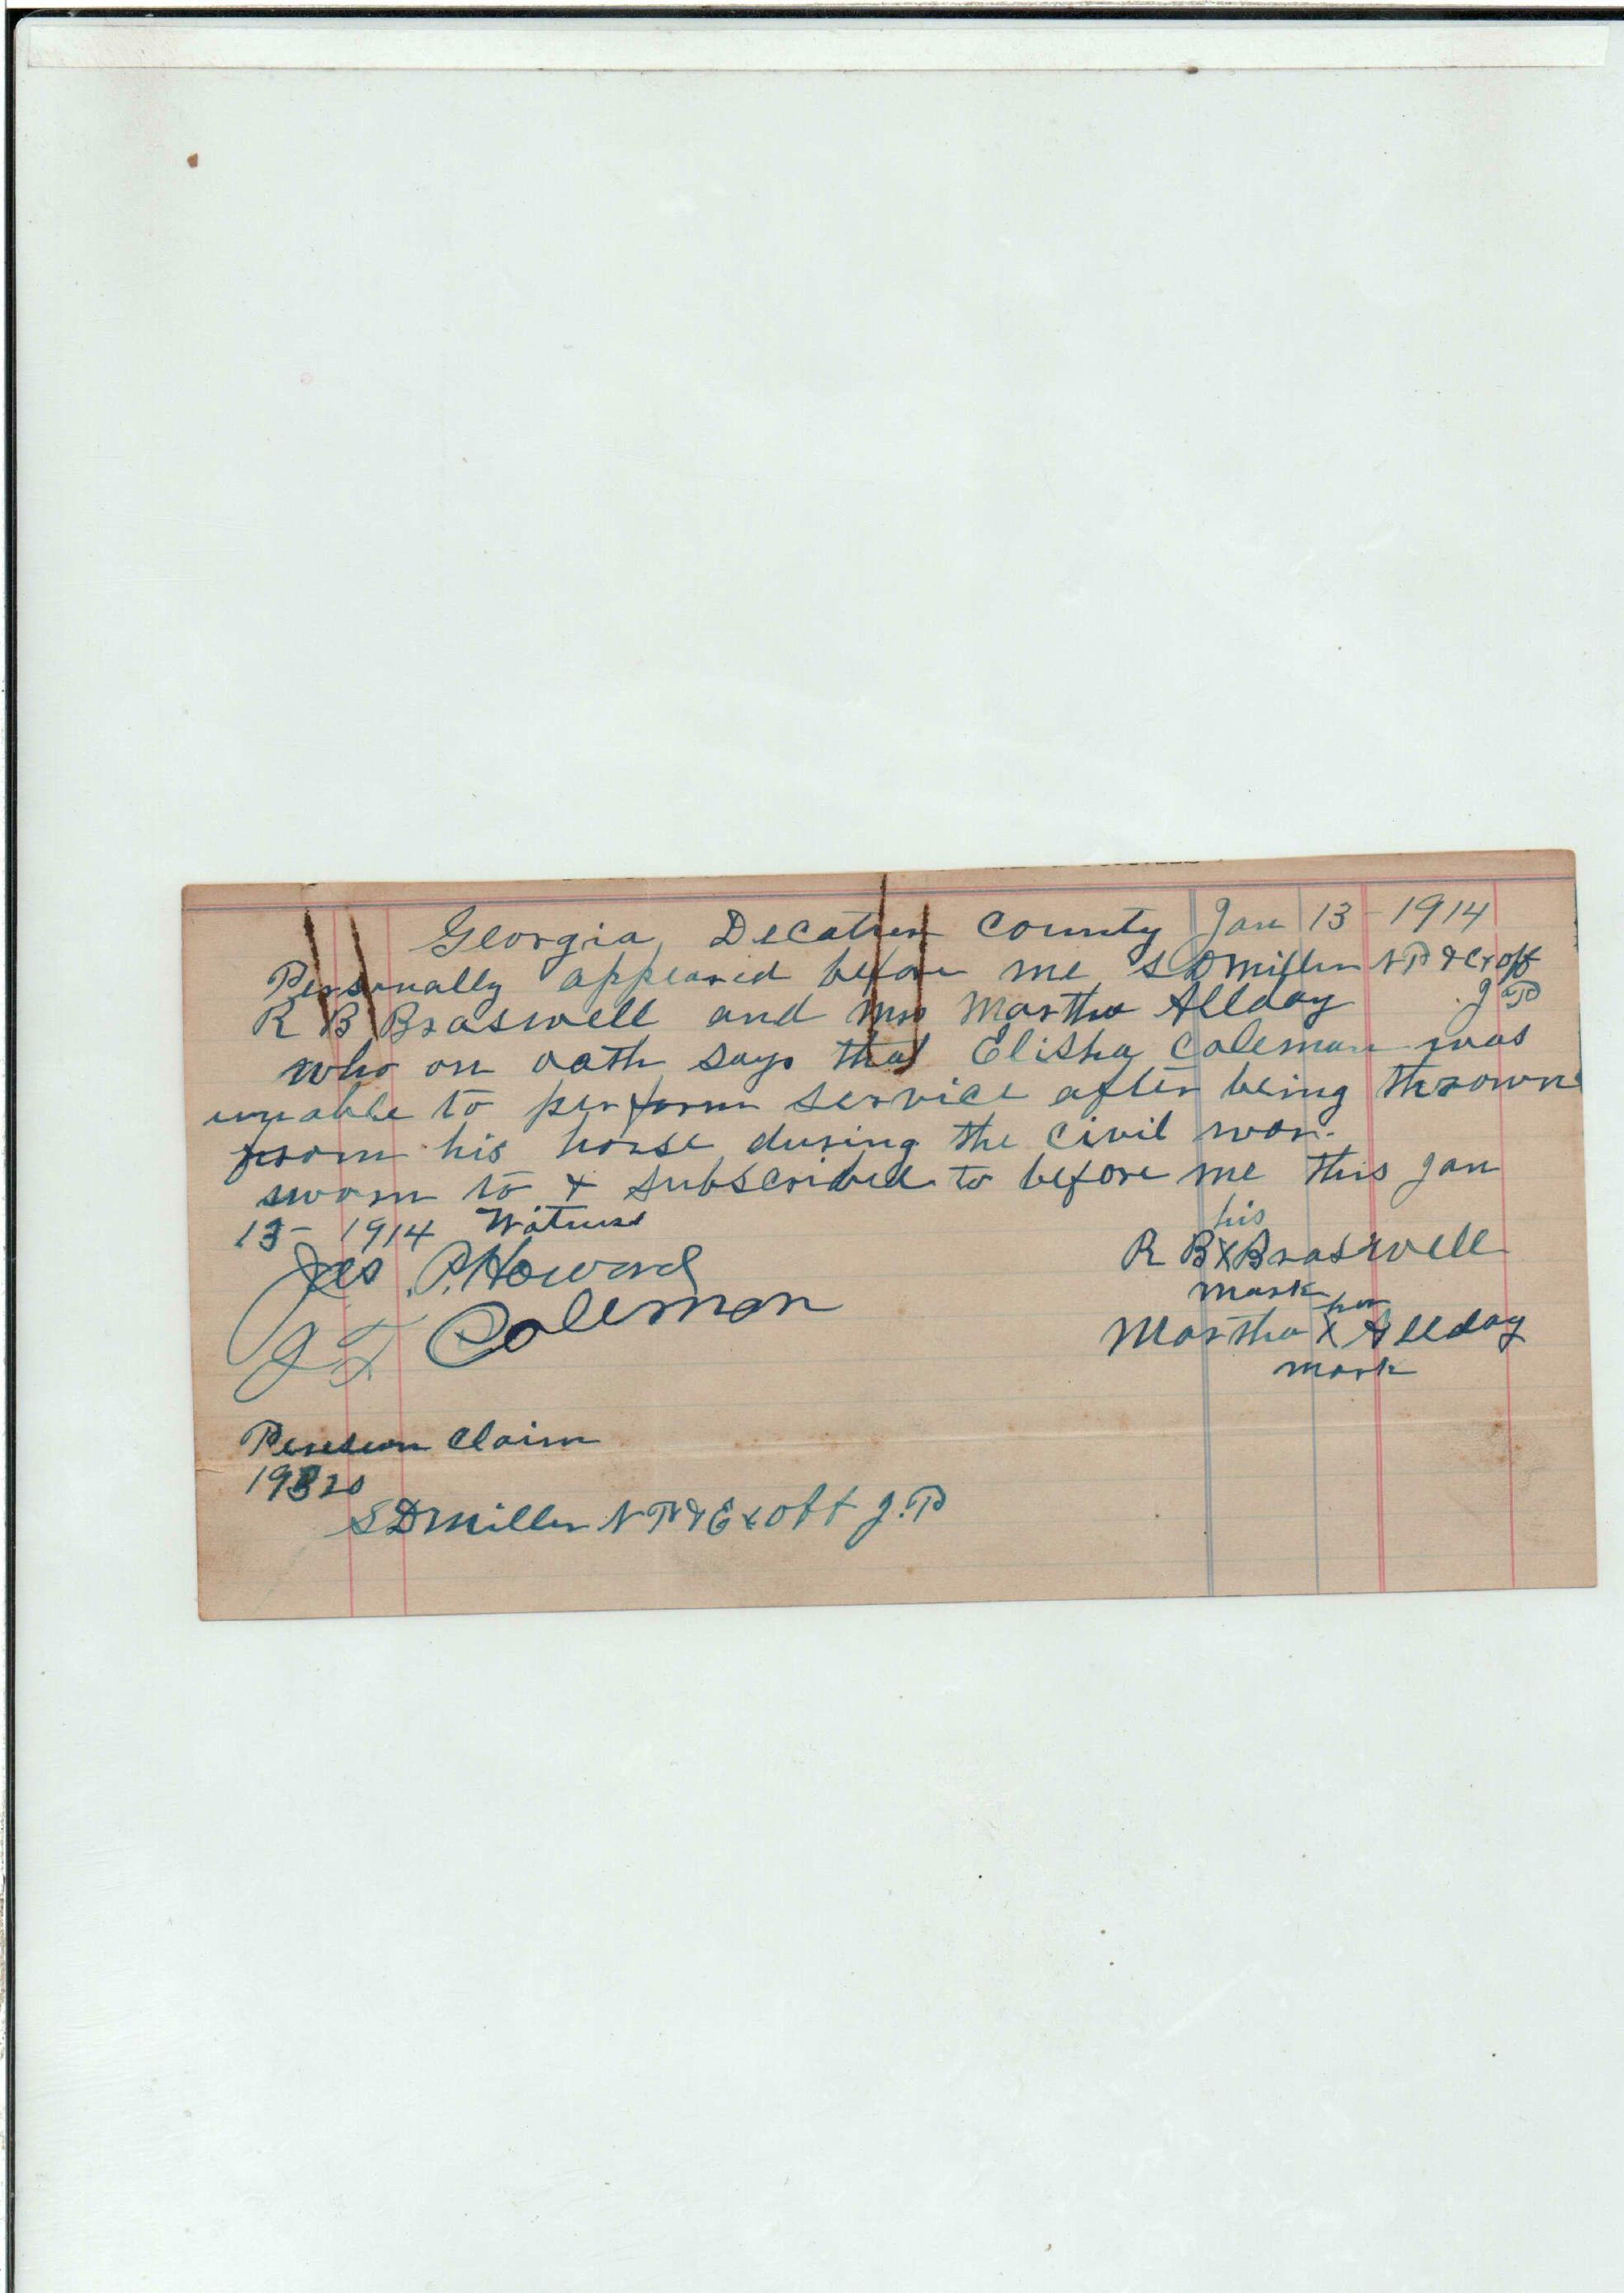 Georgia, Decatur County Jan 13 - 1914
Personally appeared before me S D Miller N P & Ex off
R B Braswell and Mrs Martha Allday J P
who on oath says that Elisha Coleman was
unable to perform service after being thrown
from his horse during the civil war.
sworn to & subscribed to before me this Jan
13 - 1914 Witness
his
R B X Braswell
mark
Jas P. Howard
her
Martha X Allday
mark
J T Coleman
Pension Claim
19320
S D Miller N P & Ex off J. P